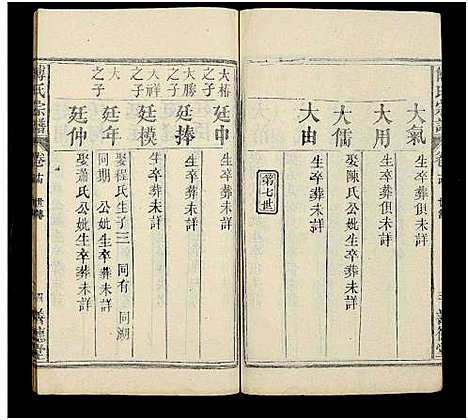 大氣 生卒葬俱未詳
大用 生卒葬俱未詳
大儒 娶陳氏公妣生卒葬未詳
大由 生卒葬未詳
第七世
大椿之子 廷中 生卒葬未詳
大勝之子 廷捧 生卒葬未詳
大祥之子 廷模 生卒葬未詳
大 之子 廷年 娶程氏生子三 同有 同湖
同期 公妣生卒葬未詳
廷仲 娶蕭氏公妣生卒葬未詳
傅氏宗譜 卷 世傳 四 德堂
氏宗譜 卷 世傳 三 德堂